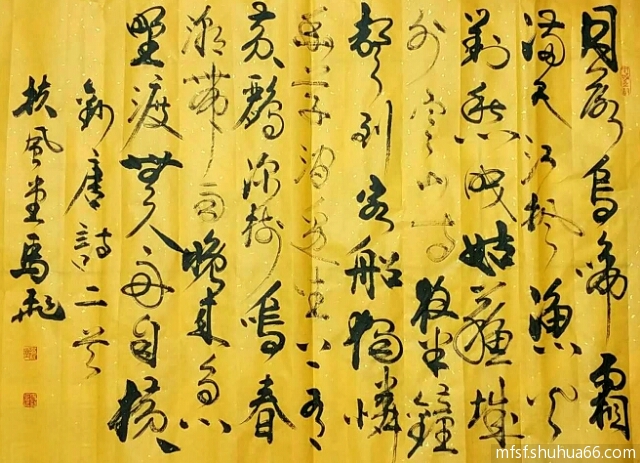 月落烏啼霜
滿天江楓漁火
對愁眠姑蘇城
外寒山寺夜半鐘
聲到客船獨憐
幽草澗邊生上有
黃鸝深樹鳴春
潮帶雨晚來急
野渡無人舟自横
唐詩二首
扶風堂馬
mfsf.shuhua66.com